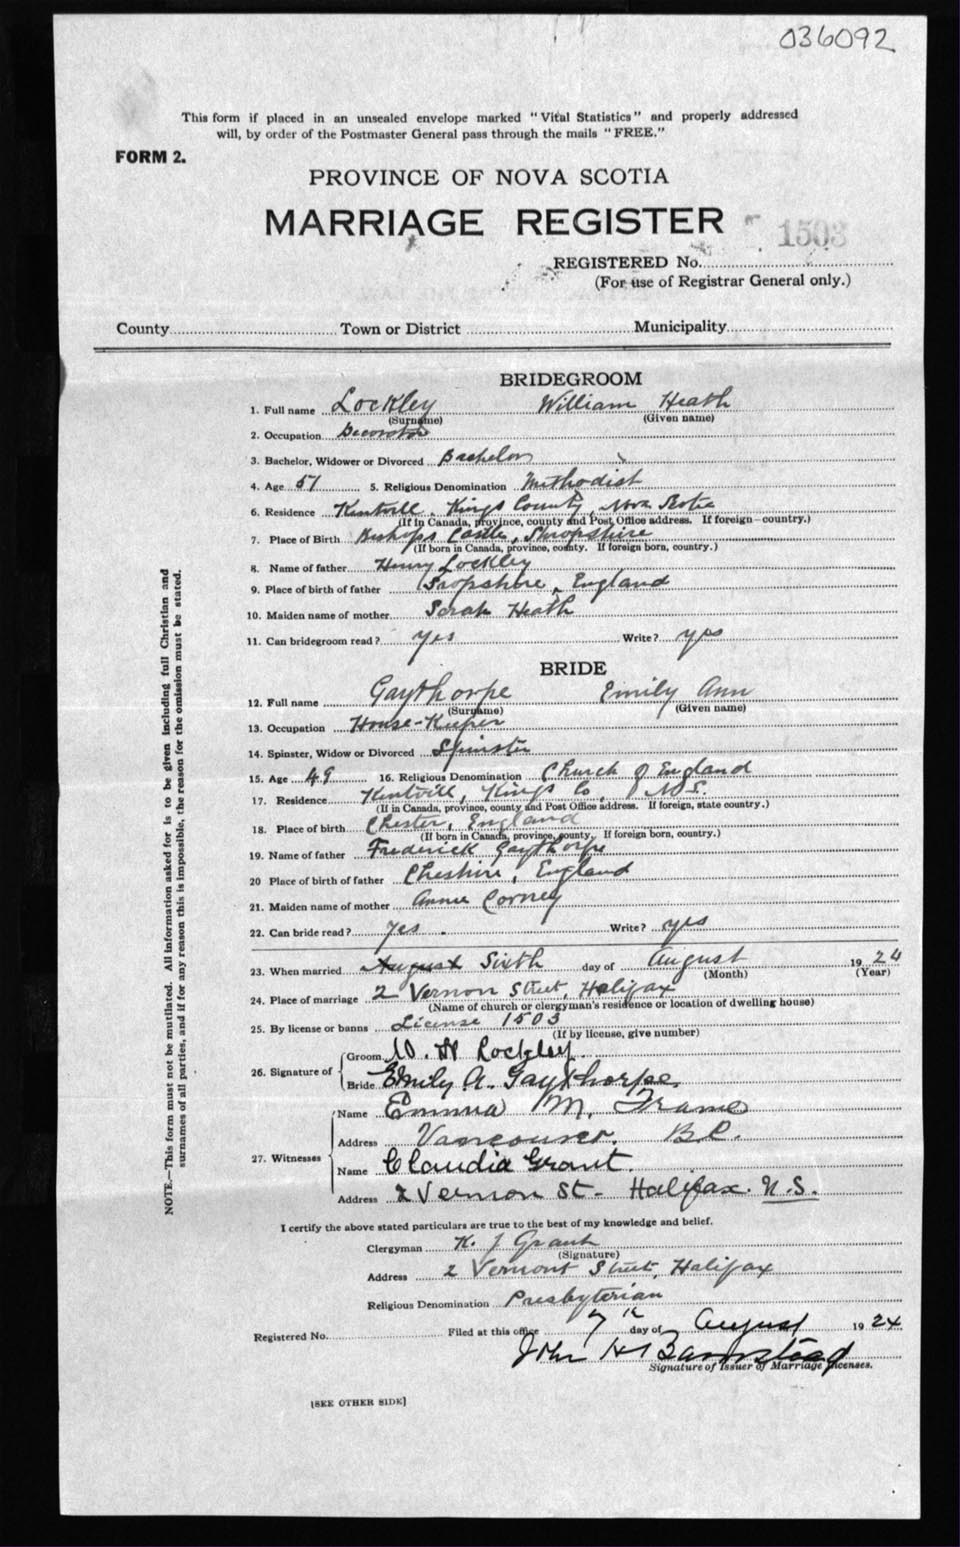 036092
This form if placed in an unsealed envelope marked "Vital Statistics" and properly addressed
will, by order of the Postmaster General pass through the mails "FREE."
FORM 2.
PROVINCE OF NOVA SCOTIA
MARRIAGE REGISTER
1503
REGISTERED No.
(For use of Registrar General only.)
County Town or District Municipality
BRIDEGROOM
1. Full name Lockley William Heath
(Surname) (Given name)
2. Occupation Decorator
3. Bachelor, Widower or Divorced Bachelor
4. Age 51 5. Religious Denomination Methodist
6. Residence Kentville, Kings County, Nova Scotia
(If in Canada, province, county and Post Office address. If foreign—country.)
7. Place of Birth Bishops Castle, Shropshire
(If born in Canada, province, county. If foreign born, country.)
8. Name of father Henry Lockley
9. Place of birth of father Shropshire, England
10. Maiden name of mother Sarah Heath
11. Can bridegroom read? yes Write? yes
BRIDE
12. Full name Gaythorpe Emily Ann
(Surname) (Given name)
13. Occupation House-Keeper
14. Spinster, Widow or Divorced Spinster
15. Age 49 16. Religious Denomination Church of England
17. Residence Kentville, Kings Co, N.S.
(If in Canada, province, county and Post Office address. If foreign, state country.)
18. Place of birth Chester, England
(If born in Canada, province, county. If foreign born, country.)
19. Name of father Frederick Gaythorpe
20 Place of birth of father Cheshire, England
21. Maiden name of mother Annie Corney
22. Can bride read? yes. Write? yes
23. When married August Sixth day of August 1924
(Month) (Year)
24. Place of marriage 2 Vernon Street, Halifax
(Name of church or clergyman's residence or location of dwelling house)
25. By license or banns License 1503
(If by license, give number)
26. Signature of
Groom W. H Lockley.
Bride Emily A. Gaythorpe.
27. Witnesses
Name Emma M. Frame
Address Vancouver. B.C.
Name Claudia Grant.
Address 2 Vernon St- Halifax. N.S.
I certify the above stated particulars are true to the best of my knowledge and belief.
Clergyman K. J Grant
(Signature)
Address 2 Vernont Street, Halifax
Religious Denomination Presbyterian
Registered No. Filed at this office 7th day of August 1924
John H Barnstead
Signature of Issuer of Marriage Licenses.
[SEE OTHER SIDE]
NOTE.—This form must not be mutilated. All information asked for is to be given including full Christian and
surnames of all parties, and if for any reason this is impossible, the reason for the omission must be stated.